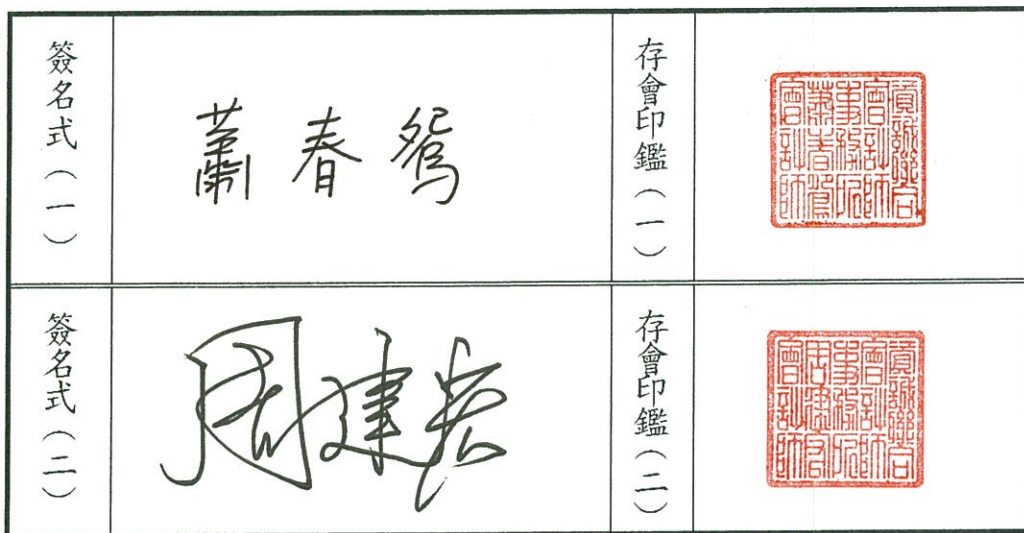 簽名式（一）
蕭春鴛
存會印鑑（一）
資誠聯合
會計師
事務所
蕭春鴛
會計師
簽名式（二）
周建宏
存會印鑑（二）
資誠聯合
會計師
事務所
周建宏
會計師